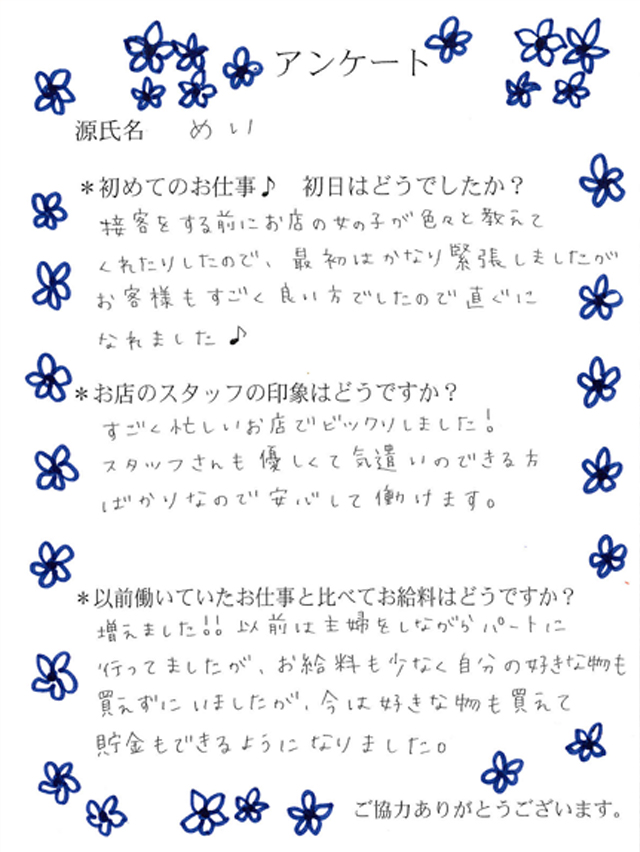 アンケート
源氏名 めい
＊初めてのお仕事♪ 初日はどうでしたか？
接客をする前にお店の女の子が色々と教えて
くれたりしたので、最初はかなり緊張しましたが
お客様もすごく良い方でしたので直ぐに
なれました♪
＊お店のスタッフの印象はどうですか？
すごく忙しいお店でビックリしました!
スタッフさんも優しくて気遣いのできる方
ばかりなので安心して働けます。
＊以前働いていたお仕事と比べてお給料はどうですか？
増えました!! 以前は主婦をしながらパートに
行ってましたが、お給料も少なく自分の好きな物も
買えずにいましたが、今は好きな物も買えて
貯金もできるようになりました。
ご協力ありがとうございます。